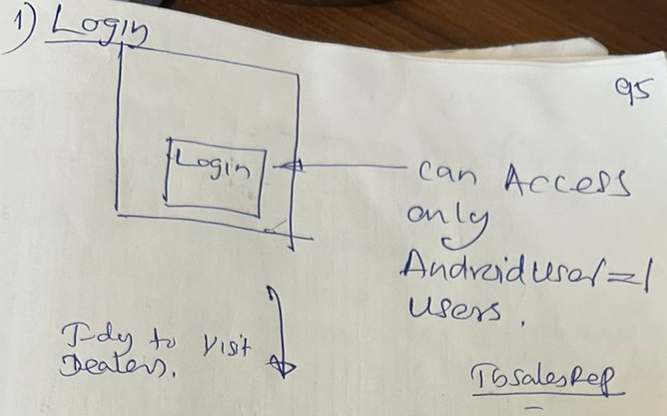 1) Login
95
Login
can Access
only
Androiduser=1
users.
T-dy to visit
Dealers.
TbSalesRep